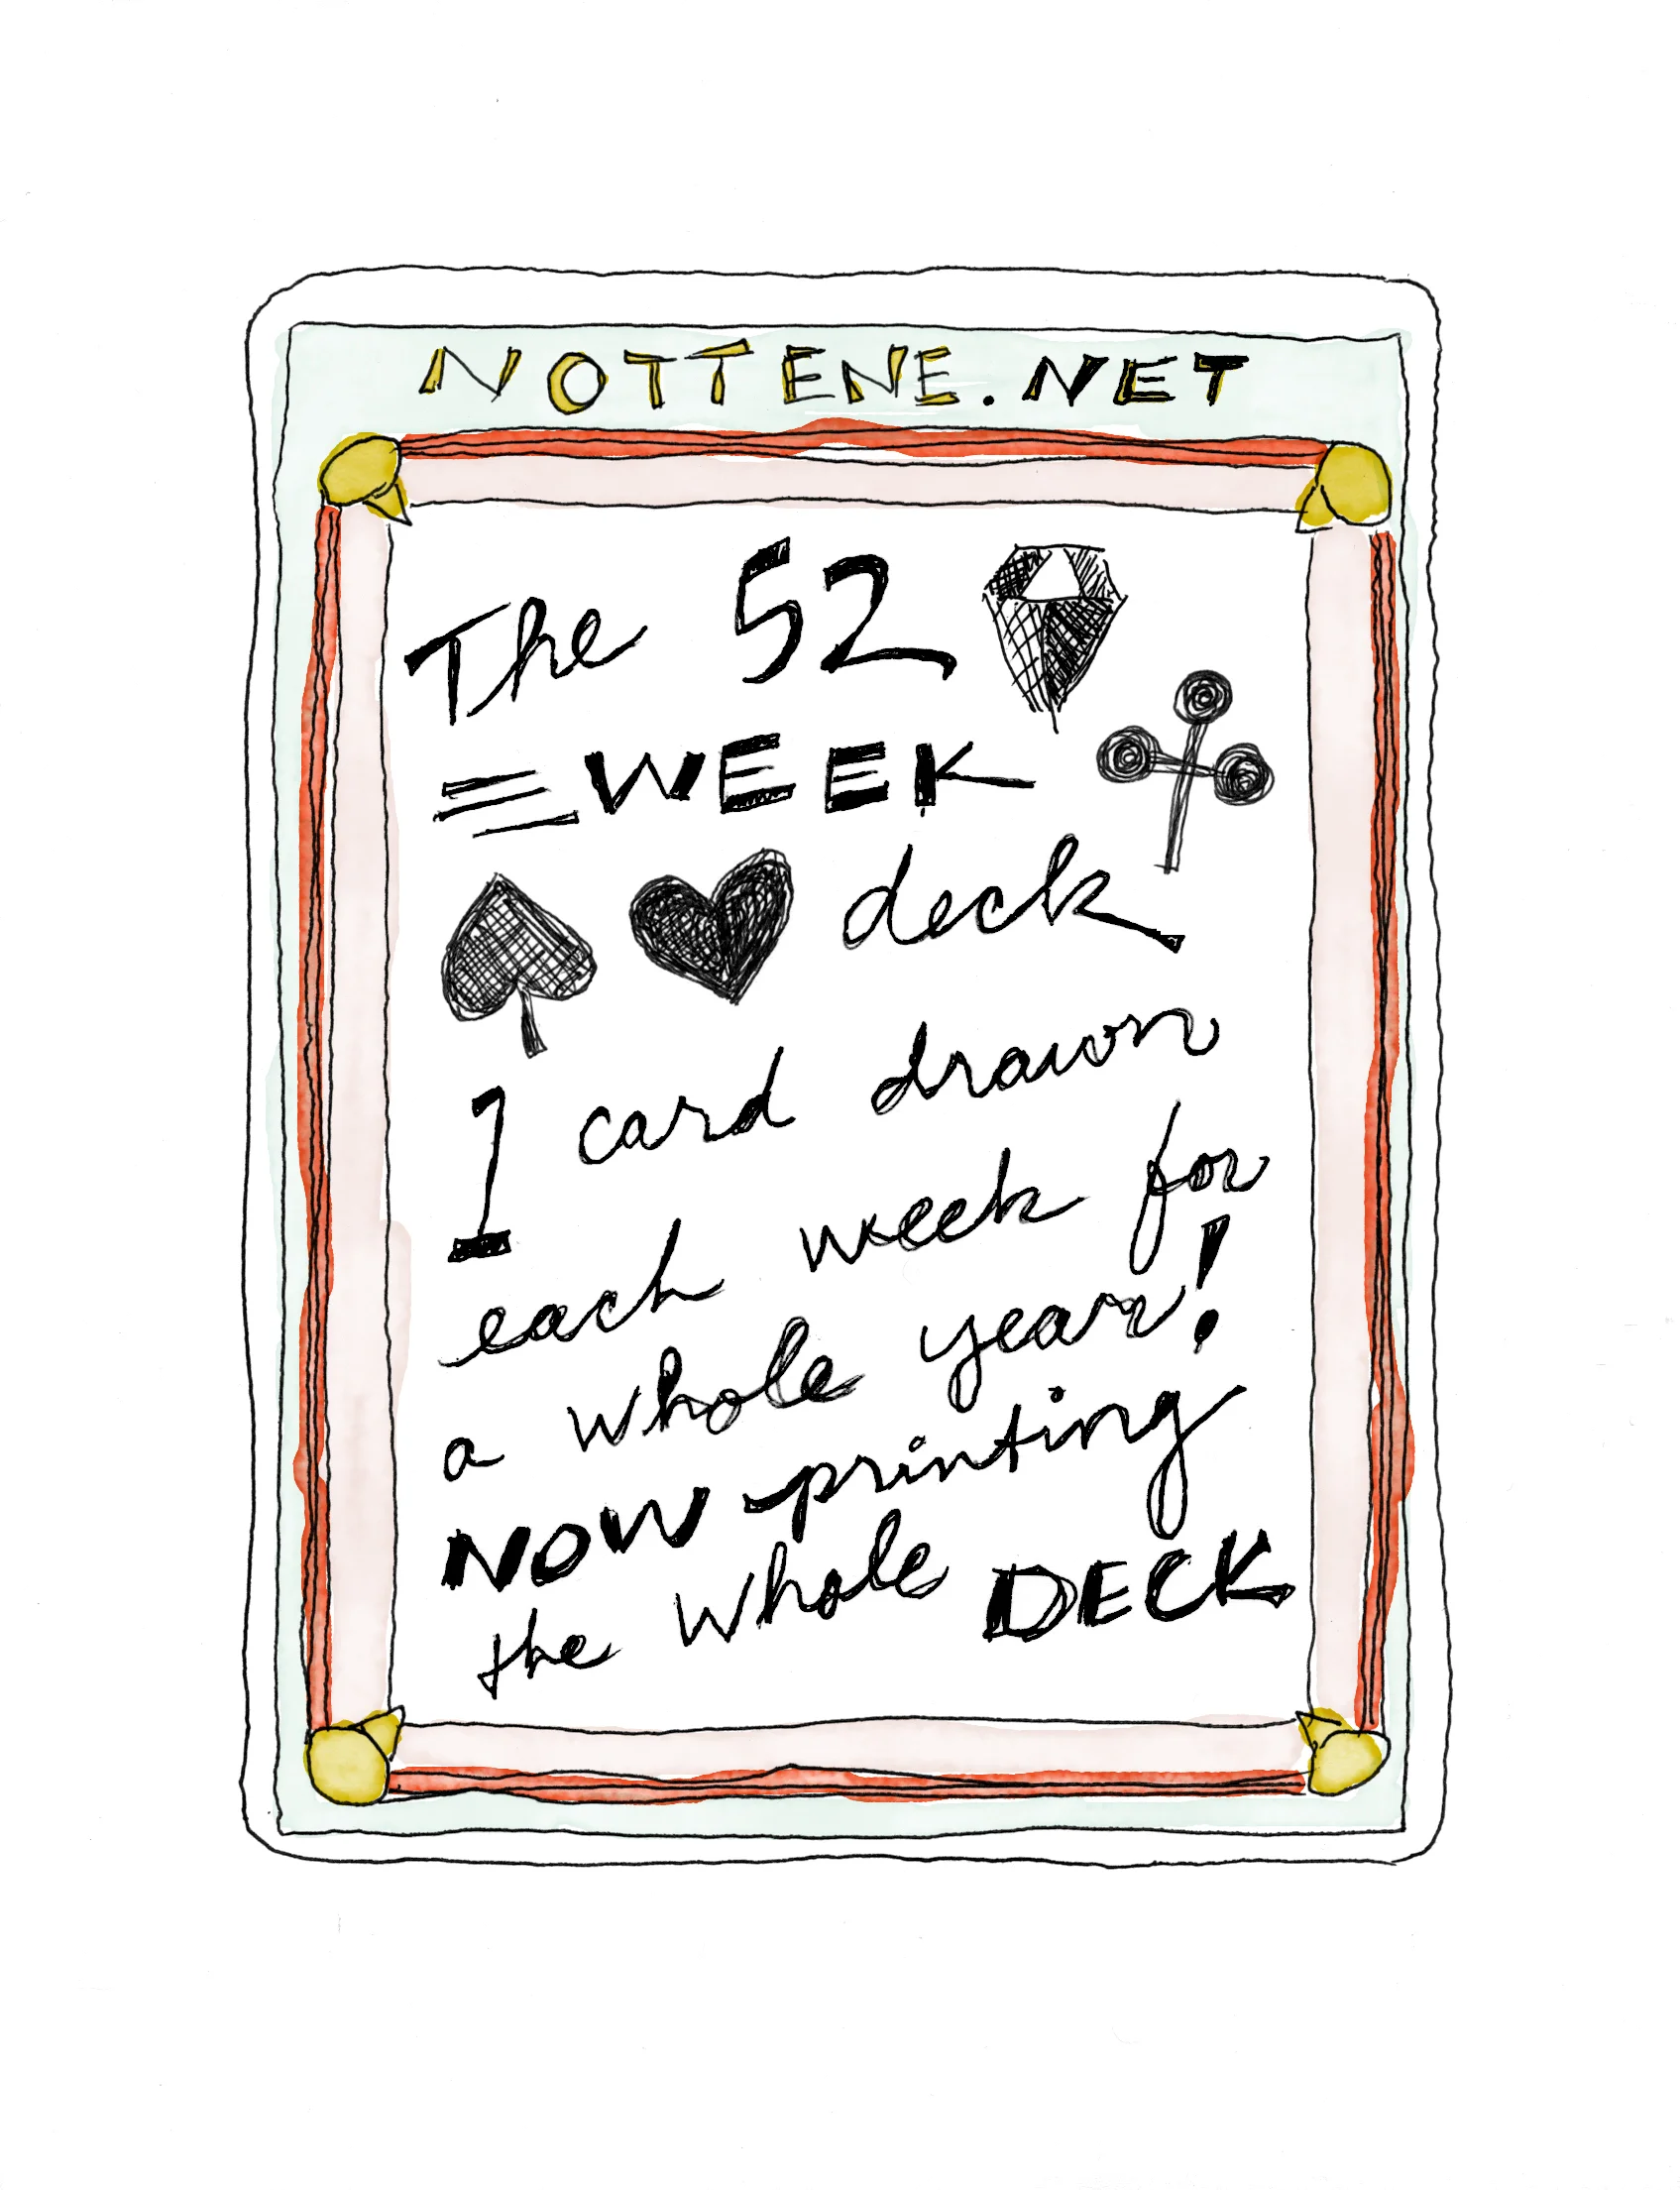 NOTTENE.NET
The 52
WEEK
deck
1 card drawn
each week for
a whole year!
NOW printing
the whole DECK